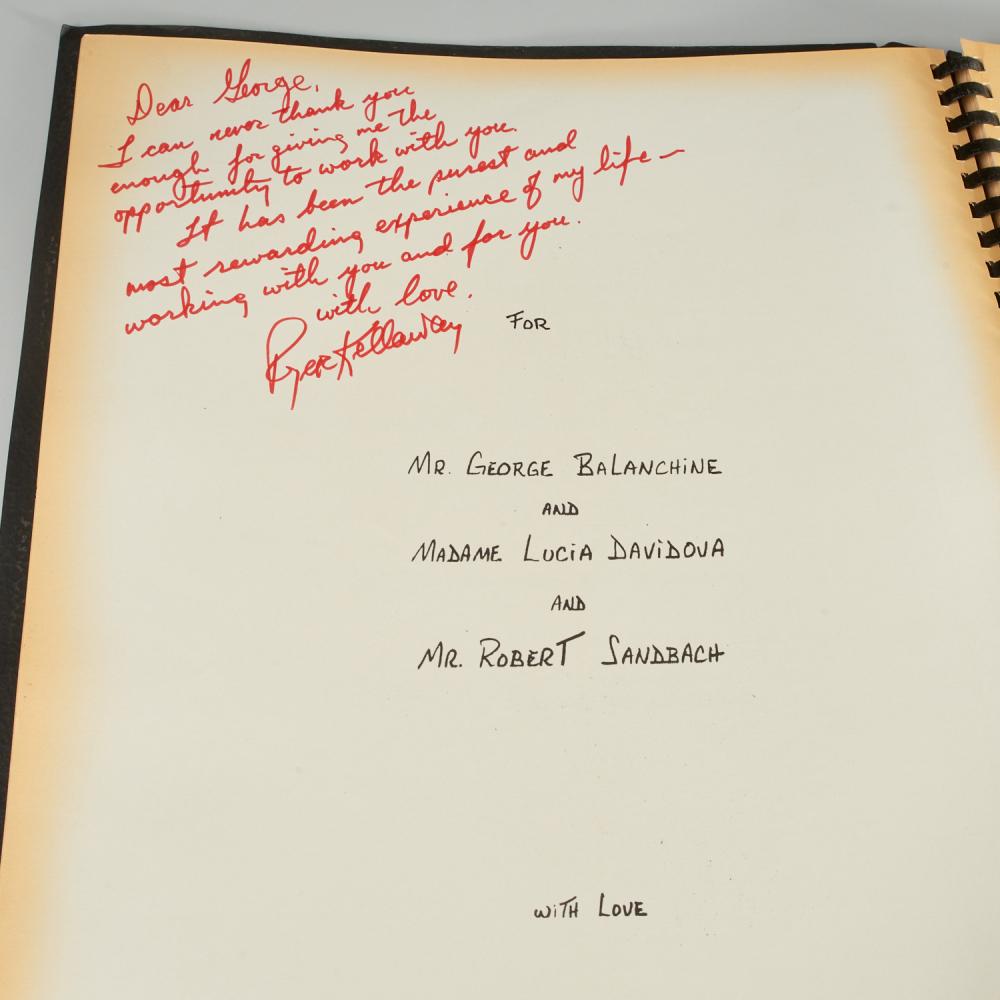 Dear George,
I can never thank you
enough for giving me the
opportunity to work with you.
It has been the purest and
most rewarding experience of my life –
working with you and for you.
with love.
Roger Kellaway
FOR
MR. GEORGE BALANCHINE
AND
MADAME LUCIA DAVIDOVA
AND
MR. ROBERT SANDBACH
WITH LOVE